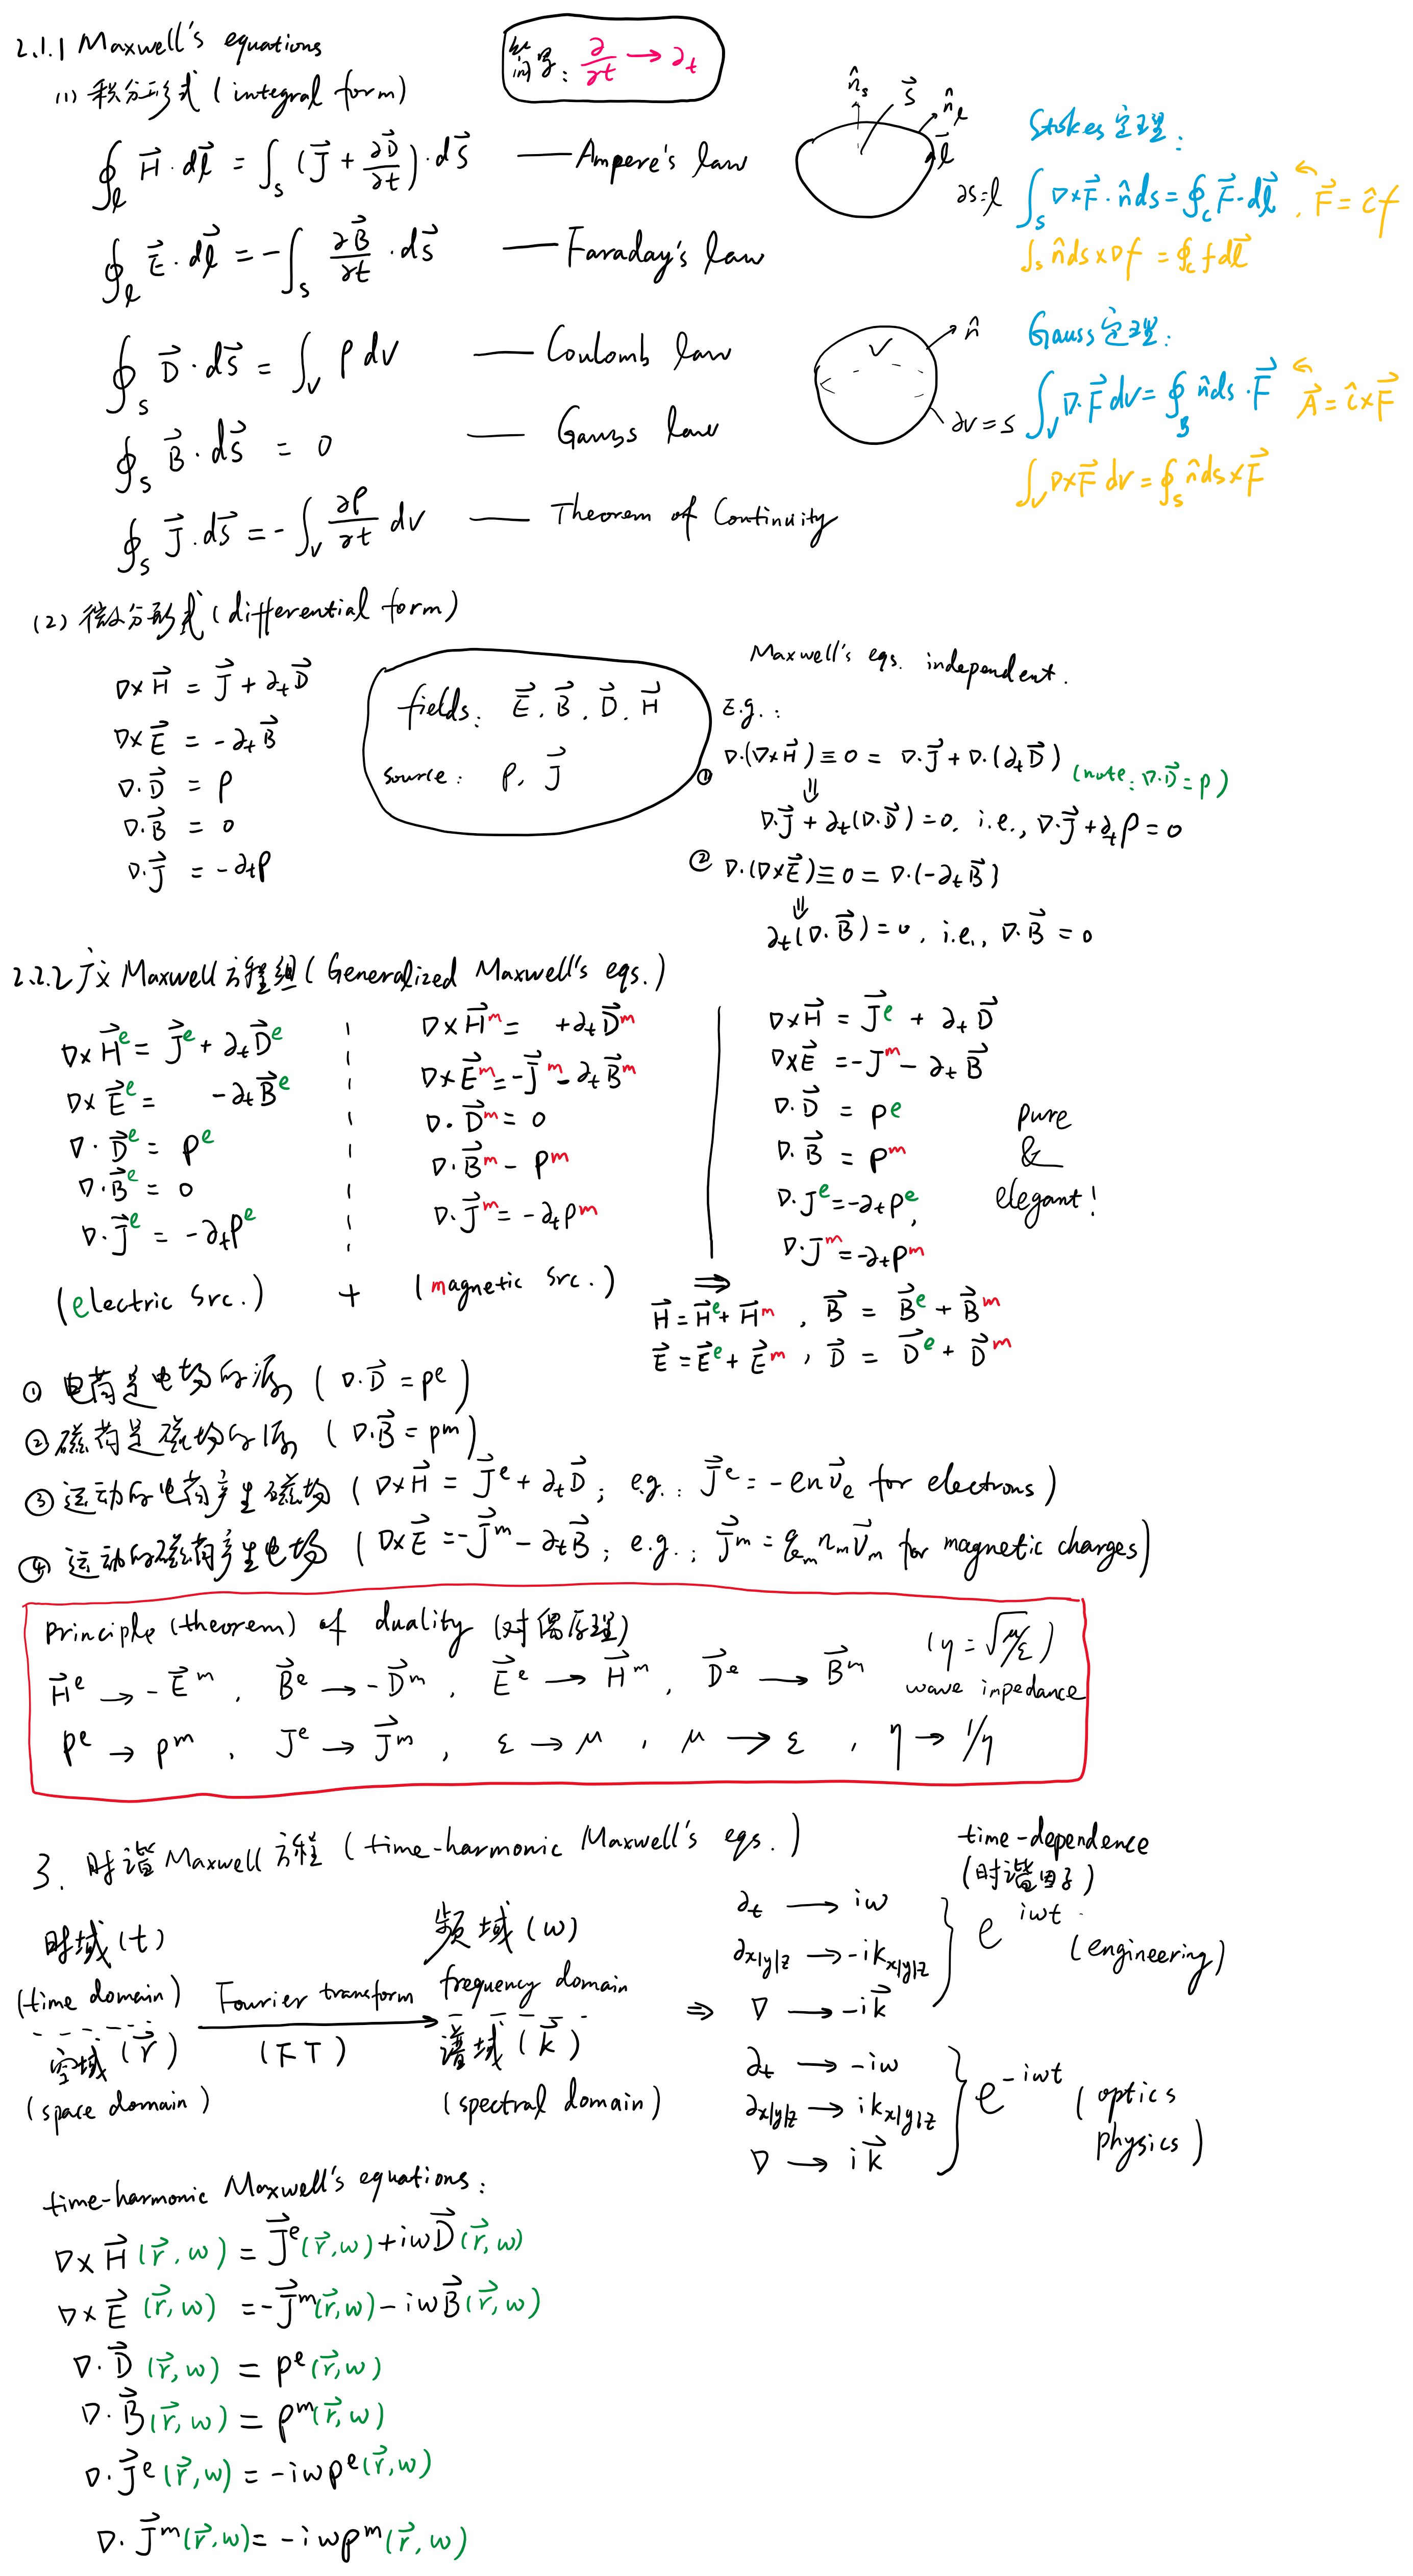 2.1.1 Maxwell's equations
简写: ∂/∂t → ∂t
(1) 积分形式 (integral form)
∮_l H⃗·dl⃗ = ∫_s (J⃗ + ∂D⃗/∂t)·dS⃗ — Ampere's law
∮_l E⃗·dl⃗ = -∫_s ∂B⃗/∂t·dS⃗ — Faraday's law
∮_s D⃗·dS⃗ = ∫_V ρ dV — Coulomb law
∮_s B⃗·dS⃗ = 0 — Gauss law
∮_s J⃗·dS⃗ = -∫_V ∂ρ/∂t dV — Theorem of Continuity
n̂_s S⃗ n̂_l dl⃗
∂S=l
Stokes 定理:
∫_S ∇×F⃗·n̂ds = ∮_c F⃗·dl⃗, F⃗ = ĉf
∫_S n̂ds×∇f = ∮_c f dl⃗
V n̂
∂V=S
Gauss 定理:
∫_V ∇·F⃗ dV = ∮_S n̂ds·F⃗ A⃗ = ĉ×F⃗
∫_V ∇×F⃗ dV = ∮_S n̂ds×F⃗
(2) 微分形式 (differential form)
∇×H⃗ = J⃗ + ∂tD⃗
∇×E⃗ = -∂tB⃗
∇·D⃗ = ρ
∇·B⃗ = 0
∇·J⃗ = -∂tρ
fields: E⃗, B⃗, D⃗, H⃗
source: ρ, J⃗
Maxwell's eqs. independent.
E.g.:
① ∇·(∇×H⃗) ≡ 0 = ∇·J⃗ + ∇·(∂tD⃗) (note: ∇·D⃗ = ρ)
⇓
∇·J⃗ + ∂t(∇·D⃗) = 0, i.e., ∇·J⃗ + ∂tρ = 0
② ∇·(∇×E⃗) ≡ 0 = ∇·(-∂tB⃗)
⇓
∂t(∇·B⃗) = 0, i.e., ∇·B⃗ = 0
2.2.2 广义 Maxwell 方程组 (Generalized Maxwell's eqs.)
∇×H⃗^e = J⃗^e + ∂tD⃗^e
∇×E⃗^e = -∂tB⃗^e
∇·D⃗^e = ρ^e
∇·B⃗^e = 0
∇·J⃗^e = -∂tρ^e
(electric src.) +
∇×H⃗^m = +∂tD⃗^m
∇×E⃗^m = -J⃗^m - ∂tB⃗^m
∇·D⃗^m = 0
∇·B⃗^m - ρ^m
∇·J⃗^m = -∂tρ^m
(magnetic src.) ⇒
∇×H⃗ = J⃗^e + ∂tD⃗
∇×E⃗ = -J^m - ∂tB⃗
∇·D⃗ = ρ^e
∇·B⃗ = ρ^m
∇·J^e = -∂tρ^e,
∇·J^m = -∂tρ^m
pure
&
elegant!
H⃗ = H⃗^e + H⃗^m, B⃗ = B⃗^e + B⃗^m
E⃗ = E⃗^e + E⃗^m, D⃗ = D⃗^e + D⃗^m
① 电荷是电场的源 (∇·D⃗ = ρ^e)
② 磁荷是磁场的源 (∇·B⃗ = ρ^m)
③ 运动的电荷产生磁场 (∇×H⃗ = J⃗^e + ∂tD⃗; e.g.: J⃗^e = -en v⃗_e for electrons)
④ 运动的磁荷产生电场 (∇×E⃗ = -J⃗^m - ∂tB⃗; e.g.: J⃗^m = q_m n_m v⃗_m for magnetic charges)
Principle (theorem) of duality (对偶原理) (η = √(μ/ε))
H⃗^e → -E⃗^m, B⃗^e → -D⃗^m, E⃗^e → H⃗^m, D⃗^e → B⃗^m wave impedance
ρ^e → ρ^m, J^e → J⃗^m, ε → μ, μ → ε, η → 1/η
3. 时谐 Maxwell 方程 (time-harmonic Maxwell's eqs.)
时域 (t)
(time domain)
空域 (r⃗)
(space domain)
Fourier transform
(FT)
频域 (ω)
frequency domain
谱域 (k⃗)
(spectral domain)
⇒
time-dependence
(时谐因子)
∂t → iω
∂x|y|z → -ik_x|y|z
∇ → -ik⃗
e^{iωt} (engineering)
∂t → -iω
∂x|y|z → ik_x|y|z
∇ → ik⃗
e^{-iωt} (optics
physics)
time-harmonic Maxwell's equations:
∇×H⃗(r⃗,ω) = J⃗^e(r⃗,ω) + iωD⃗(r⃗,ω)
∇×E⃗(r⃗,ω) = -J⃗^m(r⃗,ω) - iωB⃗(r⃗,ω)
∇·D⃗(r⃗,ω) = ρ^e(r⃗,ω)
∇·B⃗(r⃗,ω) = ρ^m(r⃗,ω)
∇·J⃗^e(r⃗,ω) = -iωρ^e(r⃗,ω)
∇·J⃗^m(r⃗,ω) = -iωρ^m(r⃗,ω)